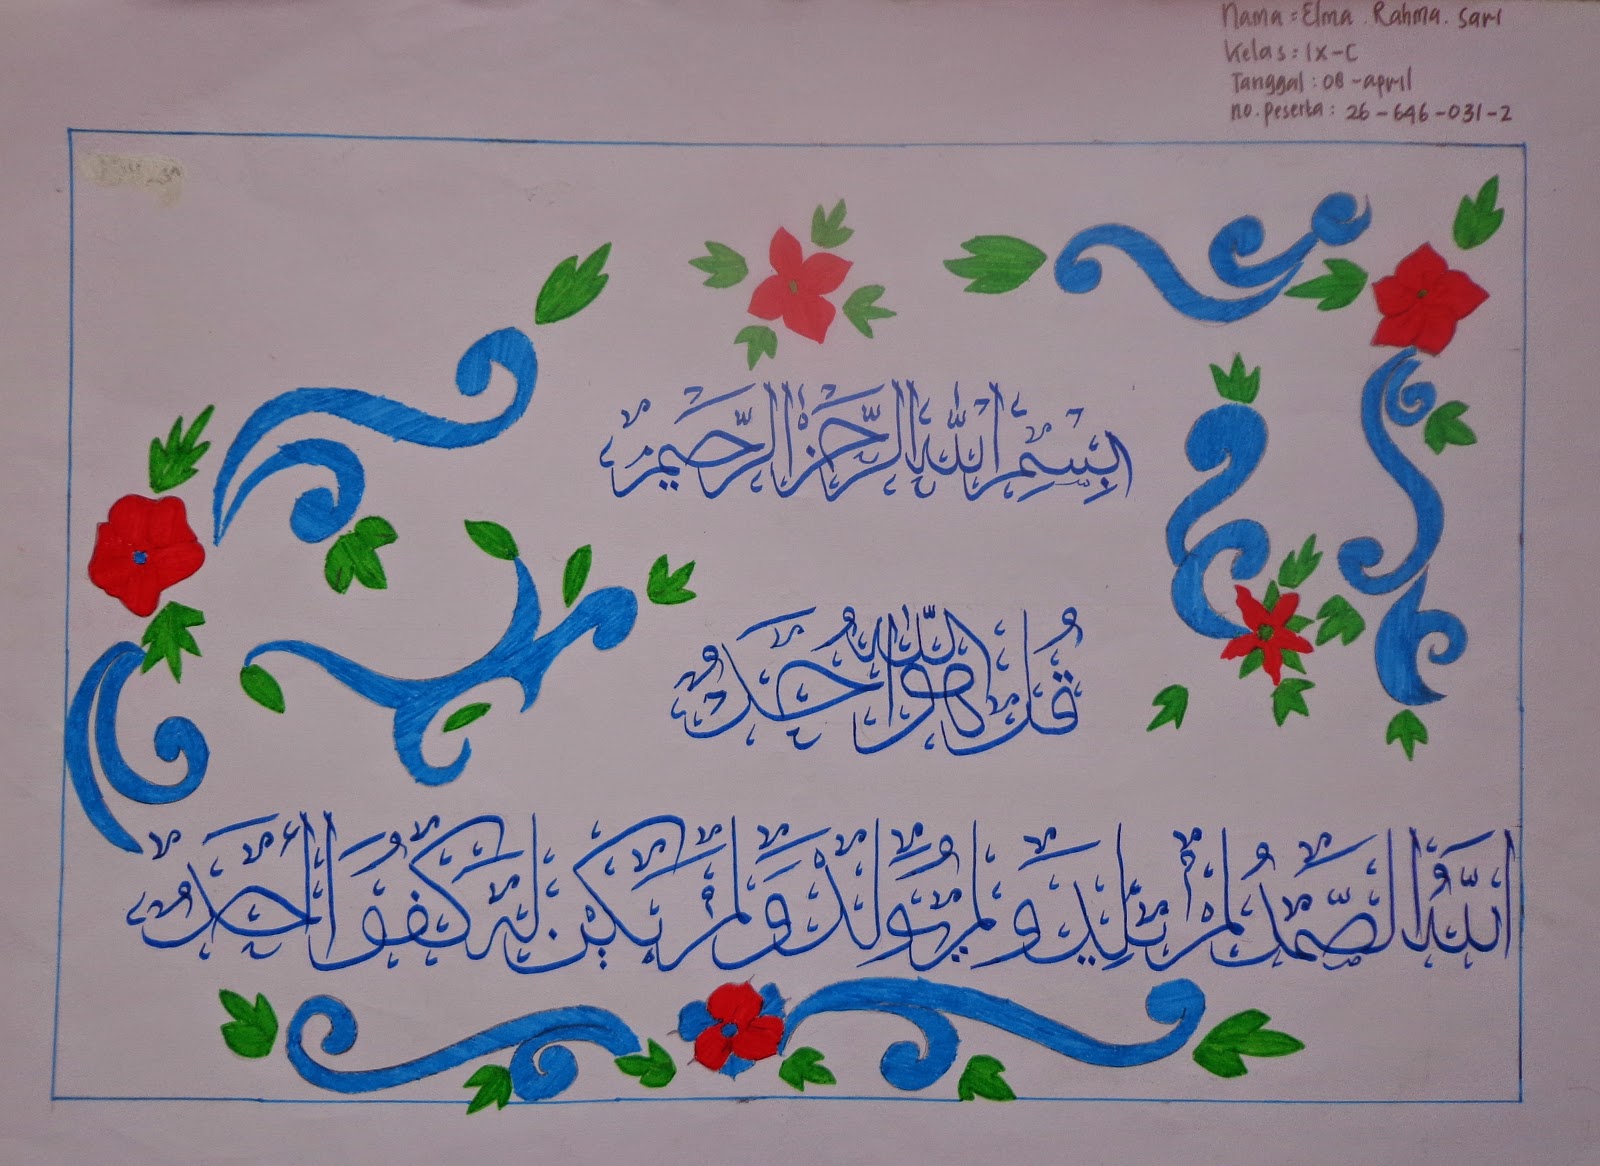 Nama = Elma . Rahma . Sari
Kelas : IX-C
Tanggal : 08 - april
no. peserta : 26 - 646 - 031 - 2
بِسْمِ اللّٰهِ الرَّحْمٰنِ الرَّحِيْمِ
قُلْ هُوَ اللّٰهُ اَحَدٌ
اَللّٰهُ الصَّمَدُ لَمْ يَلِدْ وَلَمْ يُوْلَدْ وَلَمْ يَكُنْ لَهُ كُفُوًا أَحَدٌ